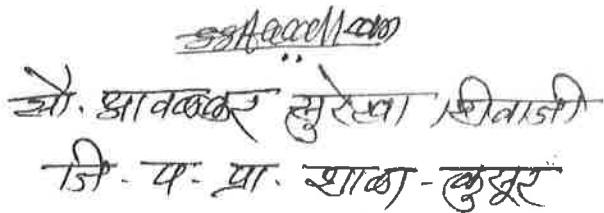 सौ. आवळकर सुरेखा शिवाजी
जि. प. प्रा. शाळा - कुसूर